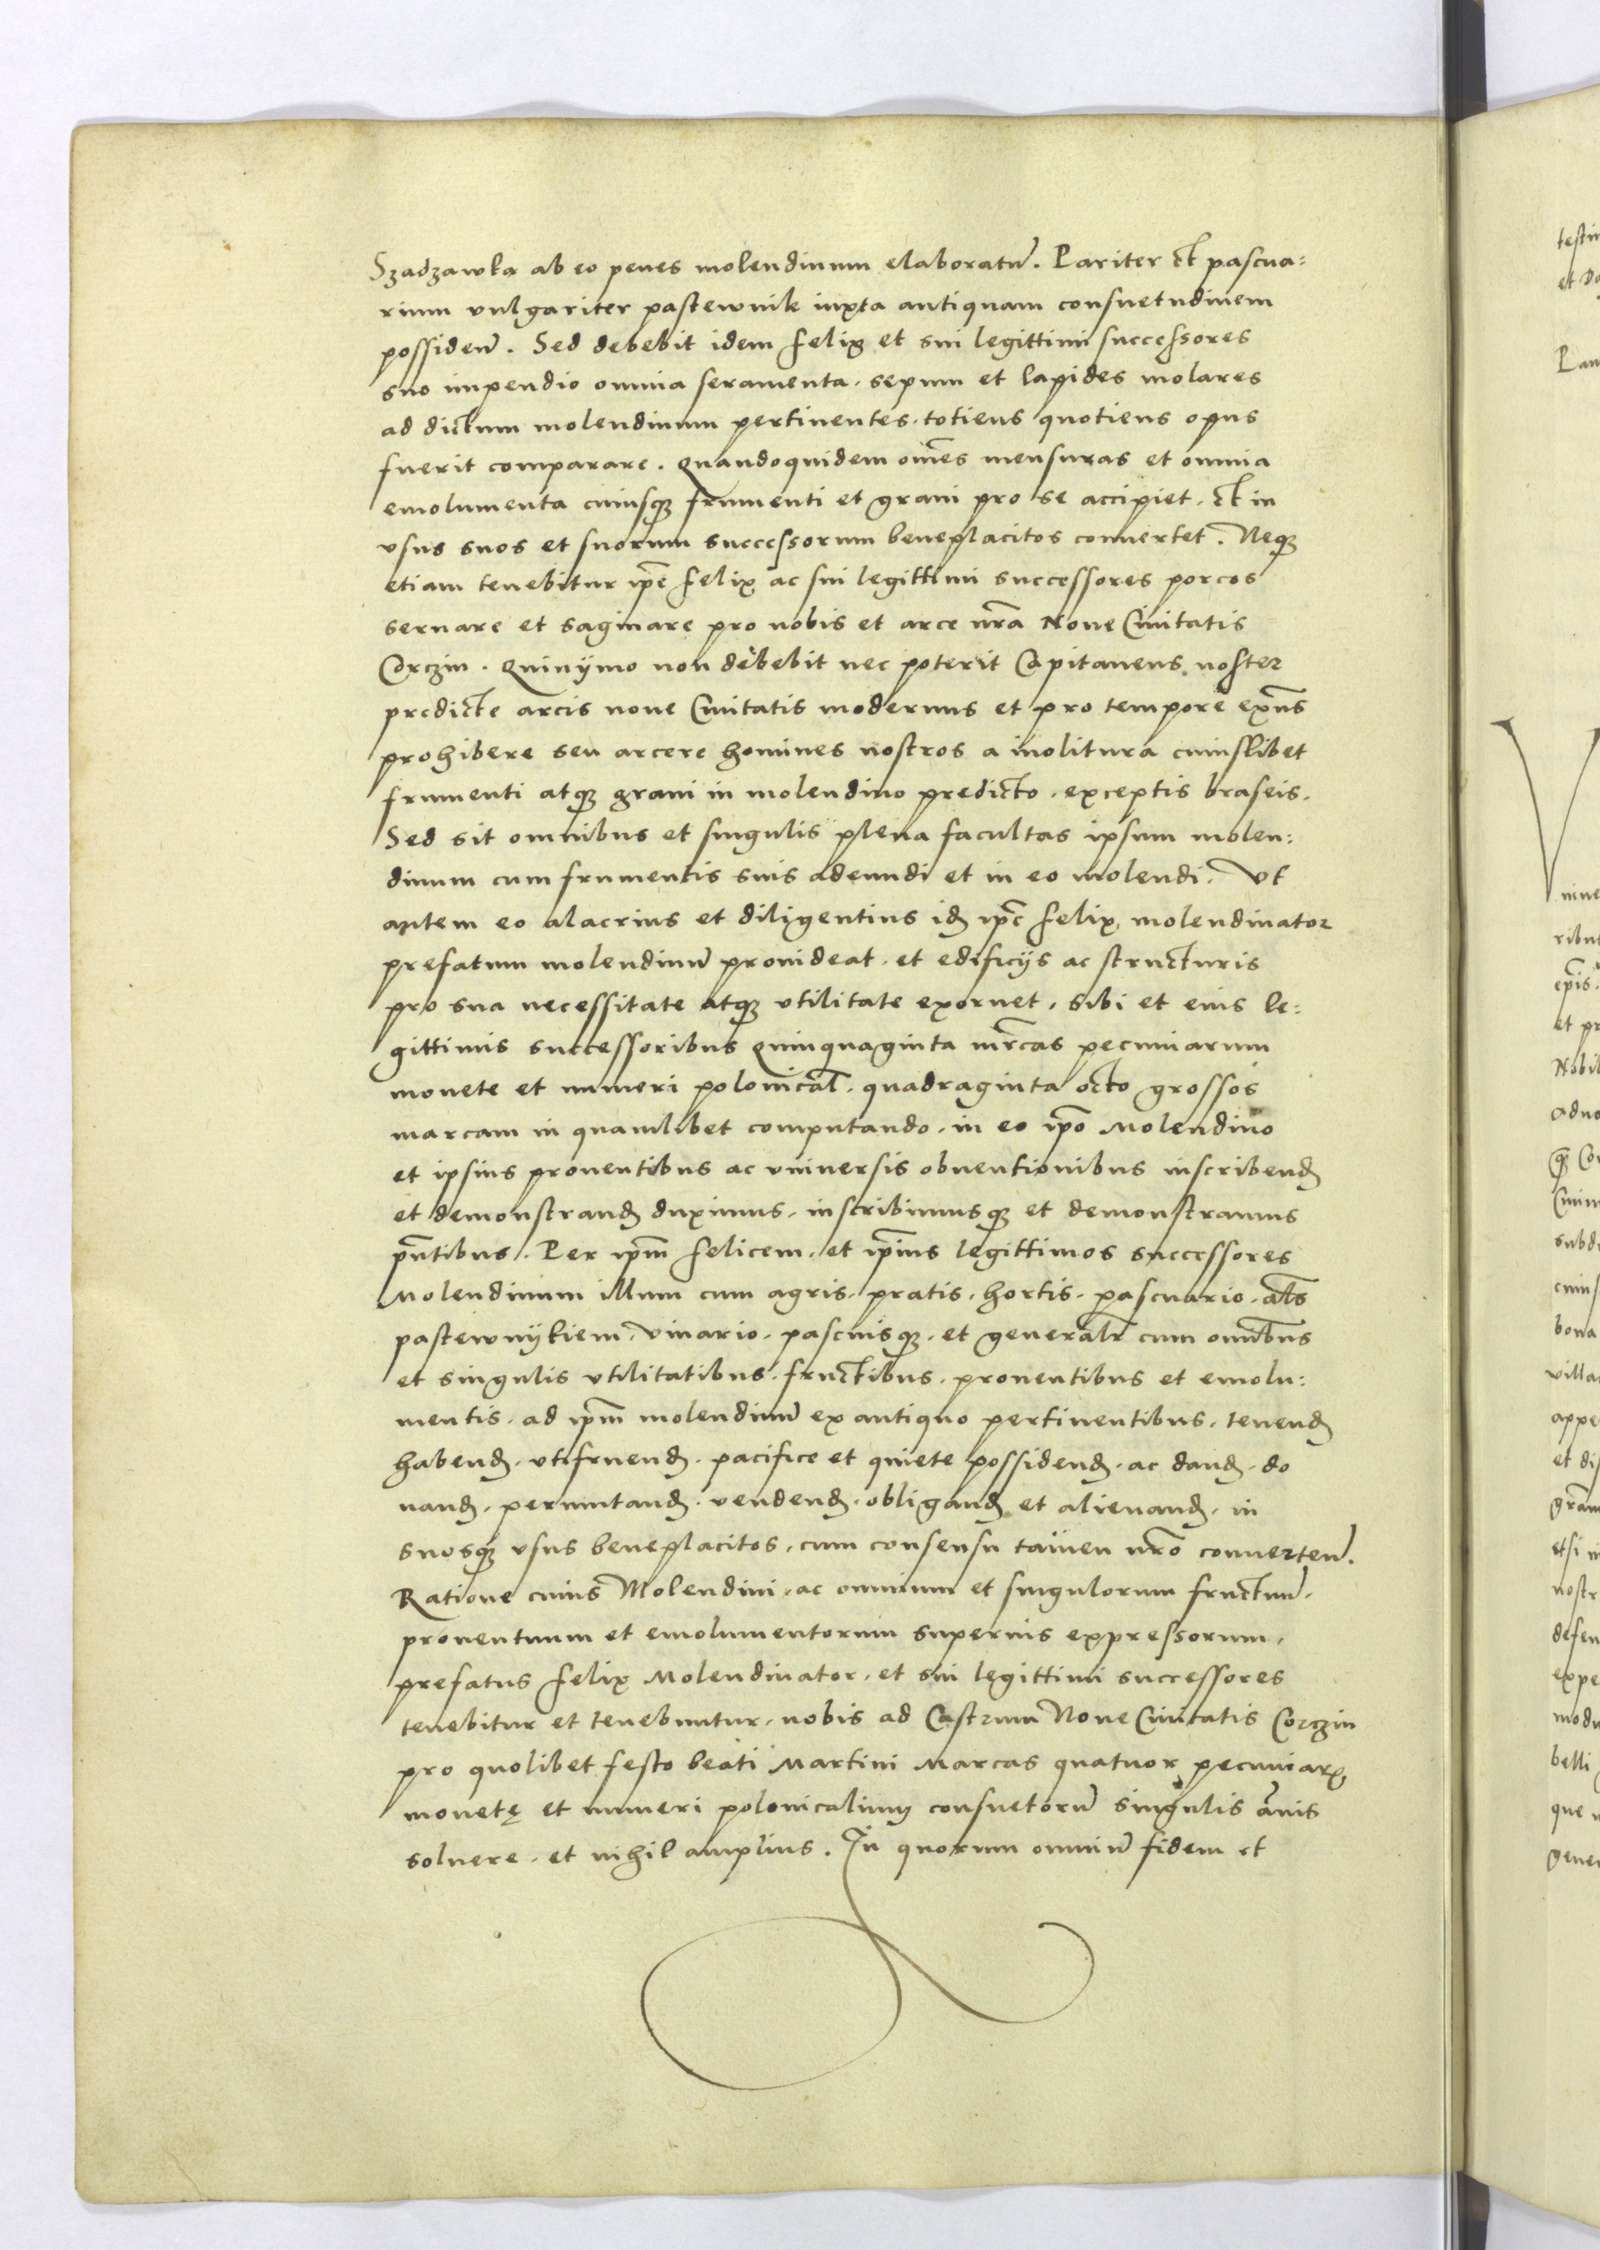 Szadzawka ab eo penes molendinum elaboratū. Pariter et pascua:
rium vulgariter pastewnik iuxta antiquam consuetudinem
possideñ. Sed debebit idem felix et sui legittimi successores
suo impendio omnia feramenta, sepum et lapides molares
ad dictum molendinum pertinentes, totiens quotiens opus
fuerit comparare. Quandoquidem om̃es mensuras et omnia
emolumenta cuiusqꝫ frumenti et grani pro se accipiet, et in
vsus suos et suorum successorum beneplacitos conuertet. Neqꝫ
etiam tenebitur ip̃e felix ac sui legittimi successores porcos
seruare et saginare pro nobis et arce nr̃a Noue Ciuitatis
Corczin. Quinymo non debebit nec poterit Capitaneus noster
predicte arcis noue Ciuitatis modernus et pro tempore exñs
prohibere seu arcere homines nostros a molitura cuiuslibet
frumenti atqꝫ grani in molendino predicto, exceptis braseis.
Sed sit omnibus et singulis plena facultas ipsum molen:
dinum cum frumentis suis adeundi et in eo molendi. Vt
autem eo alacrius et diligentius idꝫ ip̃e felix molendinator
prefatum molendinū prouideat, et edificijs ac structuris
pro sua necessitate atqꝫ vtilitate exornet, sibi et eius le:
gittimis successoribus Quinquaginta mr̃cas pecuniarum
monete et numeri polonical̃, quadraginta octo grossos
marcam in quamlibet computando, in eo ip̃o Molendino
et ipsius prouentibus ac vniuersis obuentionibus inscribendꝫ
et demonstrandꝫ duximus, inscribimusqꝫ et demonstramus
pñtibus. Per ip̃m felicem, et ip̃ius legittimos successores
Molendinum illum cum agris, pratis, hortis, pascuario, al̃s
pastewnykiem, viuario, pascuisqꝫ, et general̃r cum omībus
et singulis vtilitatibus, fructibus, prouentibus et emolu:
mentis, ad ip̃m molendinū ex antiquo pertinentibus, tenendꝫ
habendꝫ, vtifruendꝫ, pacifice et quiete possidendꝫ, ac dandꝫ, do
nandꝫ, permutandꝫ, vendendꝫ, obligandꝫ et alienandꝫ, in
suosqꝫ vsus beneplacitos, cum consensu tamen nr̃o conuerteñ.
Ratione cuius Molendini, ac omnium et singulorum fructuū,
prouentuum et emolumentorum superius expressorum,
prefatus felix Molendinator, et sui legittimi successores
tenebitur et tenebuntur, nobis ad Castrum Noue Ciuitatis Corczin
pro quolibet festo beati Martini Marcas quatuor pecuniarꝫ
monetę et numeri polonicalium consuetorū singulis añis
soluere, et nihil amplius. In quorum omniū fidem et